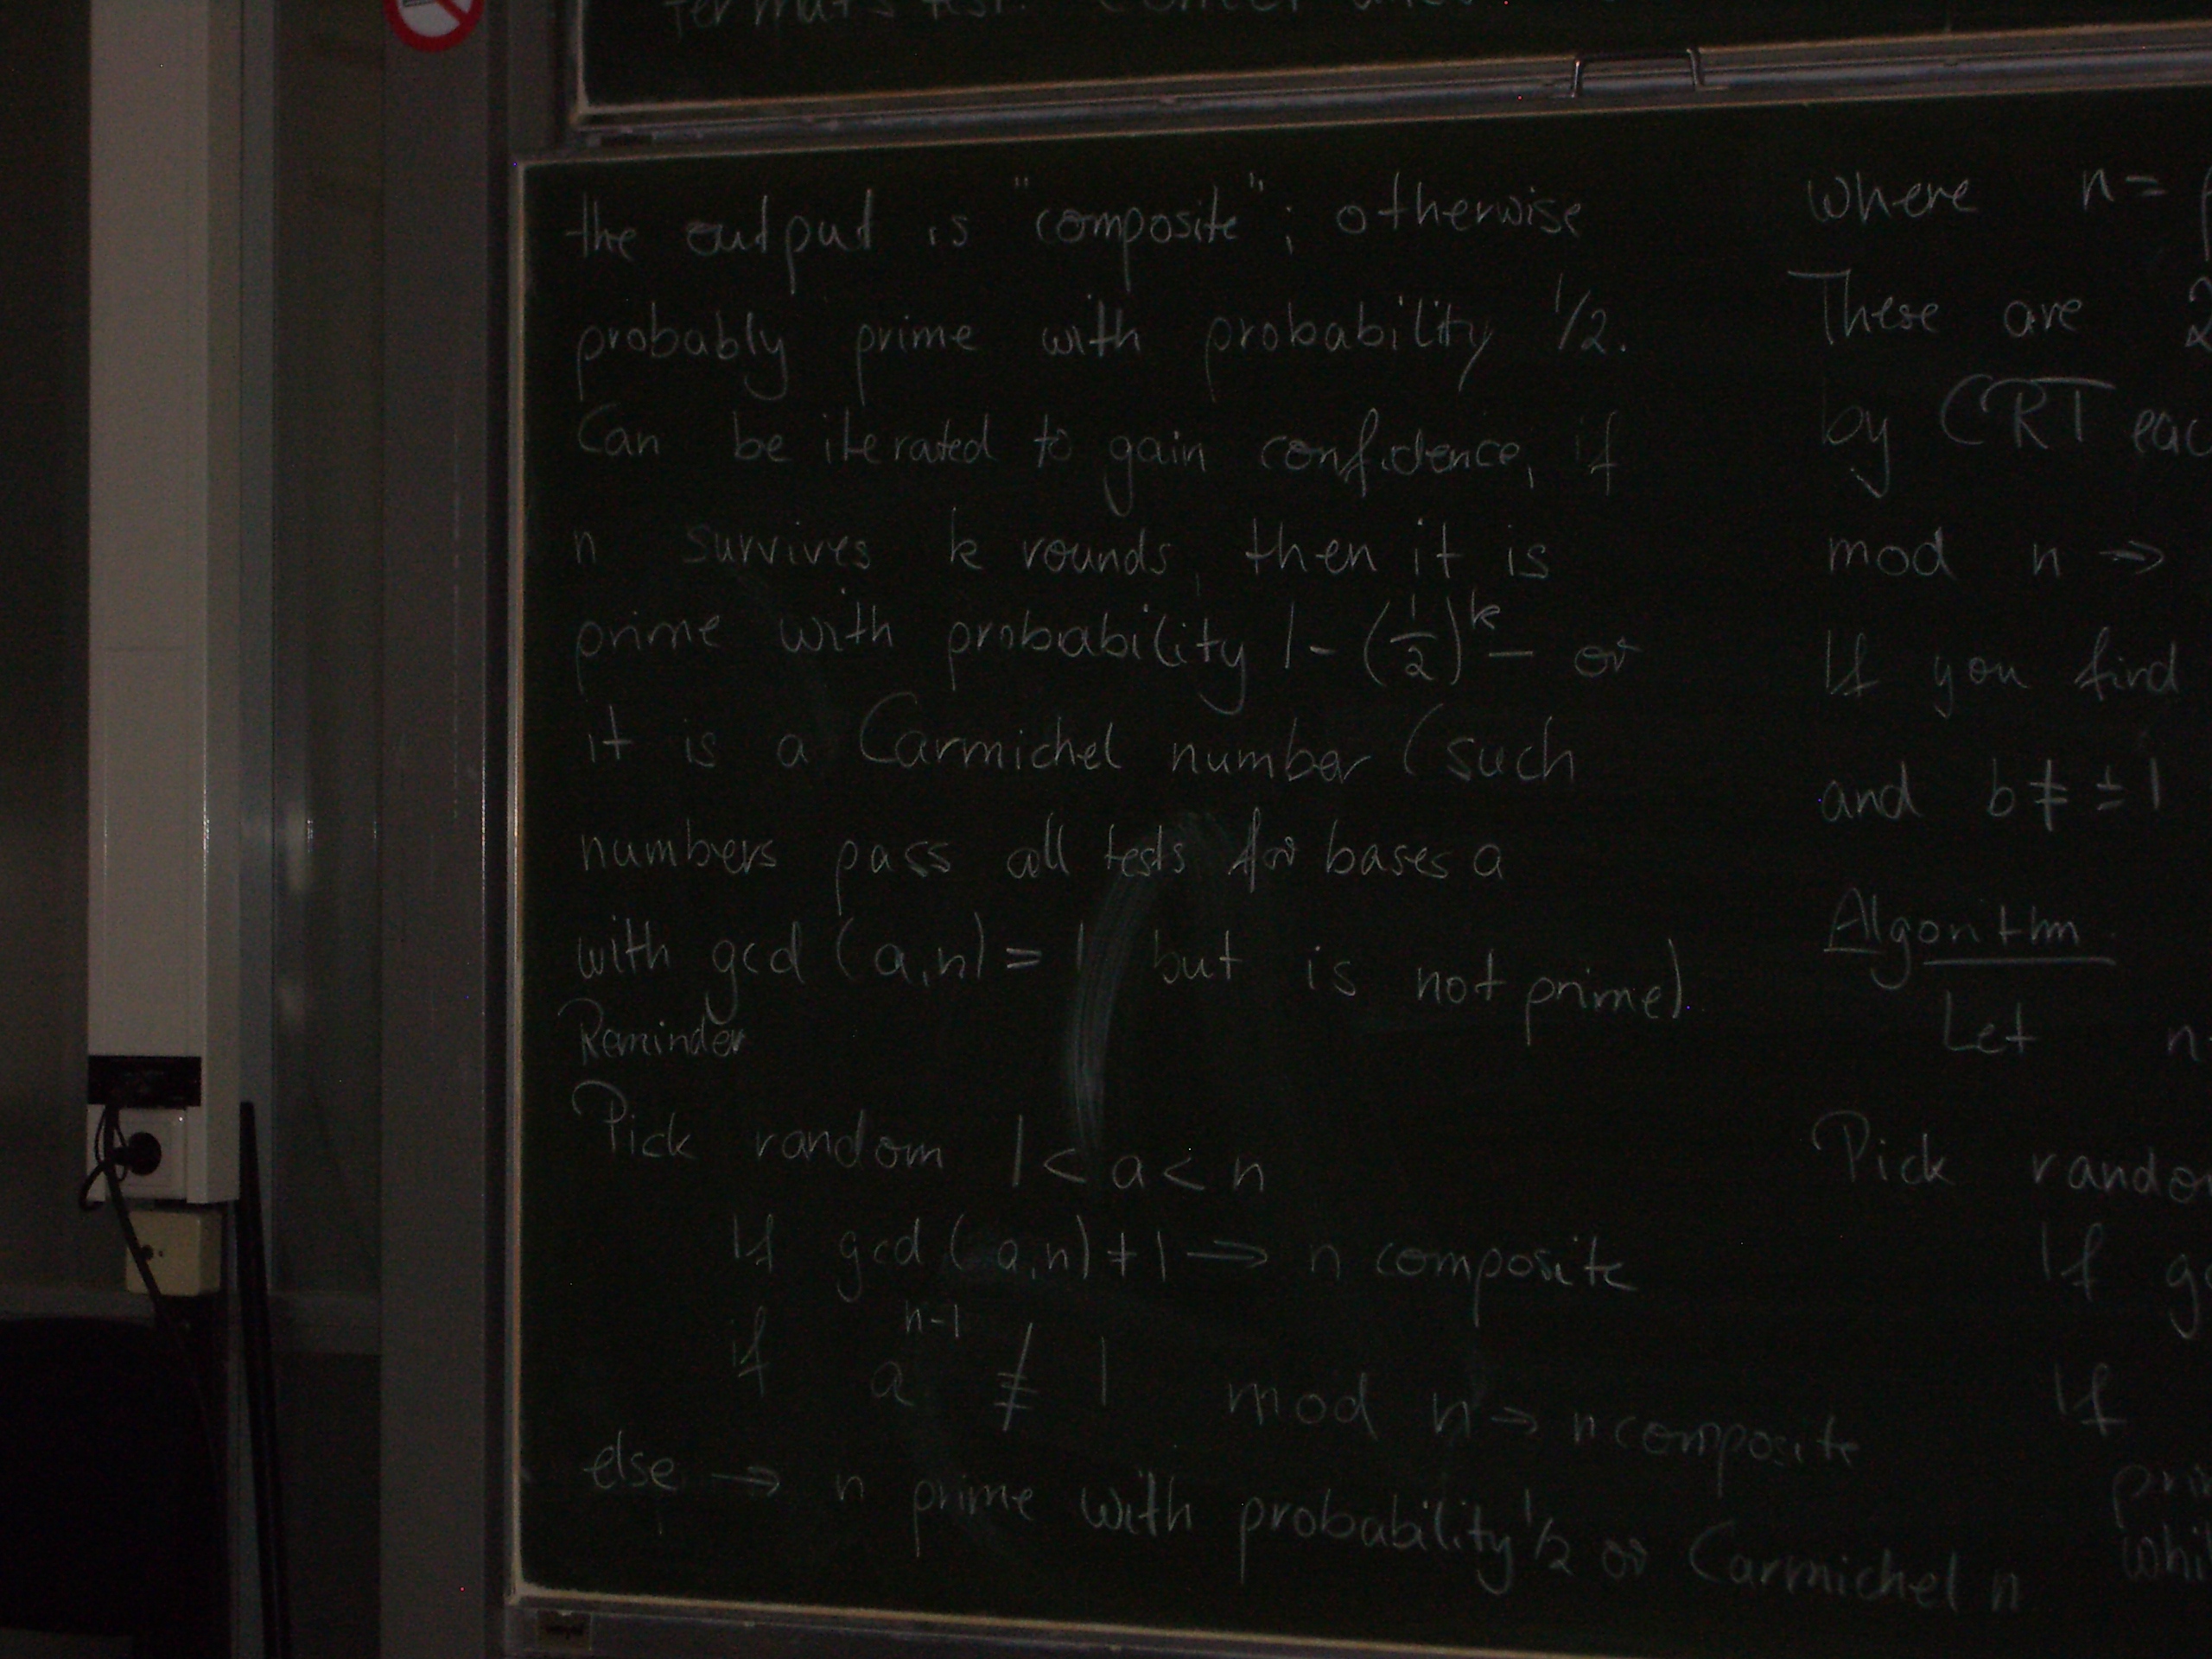 the output is "composite"; otherwise
probably prime with probability 1/2.
Can be iterated to gain confidence, if
n survives k rounds, then it is
prime with probability 1-(1/2)^k — or
it is a Carmichel number (such
numbers pass all tests for bases a
with gcd (a,n) = 1 but is not prime)
Reminder
Pick random 1 < a < n
If gcd (a,n) ≠ 1 → n composite
if a^n-1 ≢ 1 mod n → n composite
else → n prime with probability 1/2 or Carmichel n
where n =
These are 2
by CRT eac
mod n ⇒
If you find
and b ≠ ± 1
Algorithm
Let n
Pick random
If g
If
pri
whil